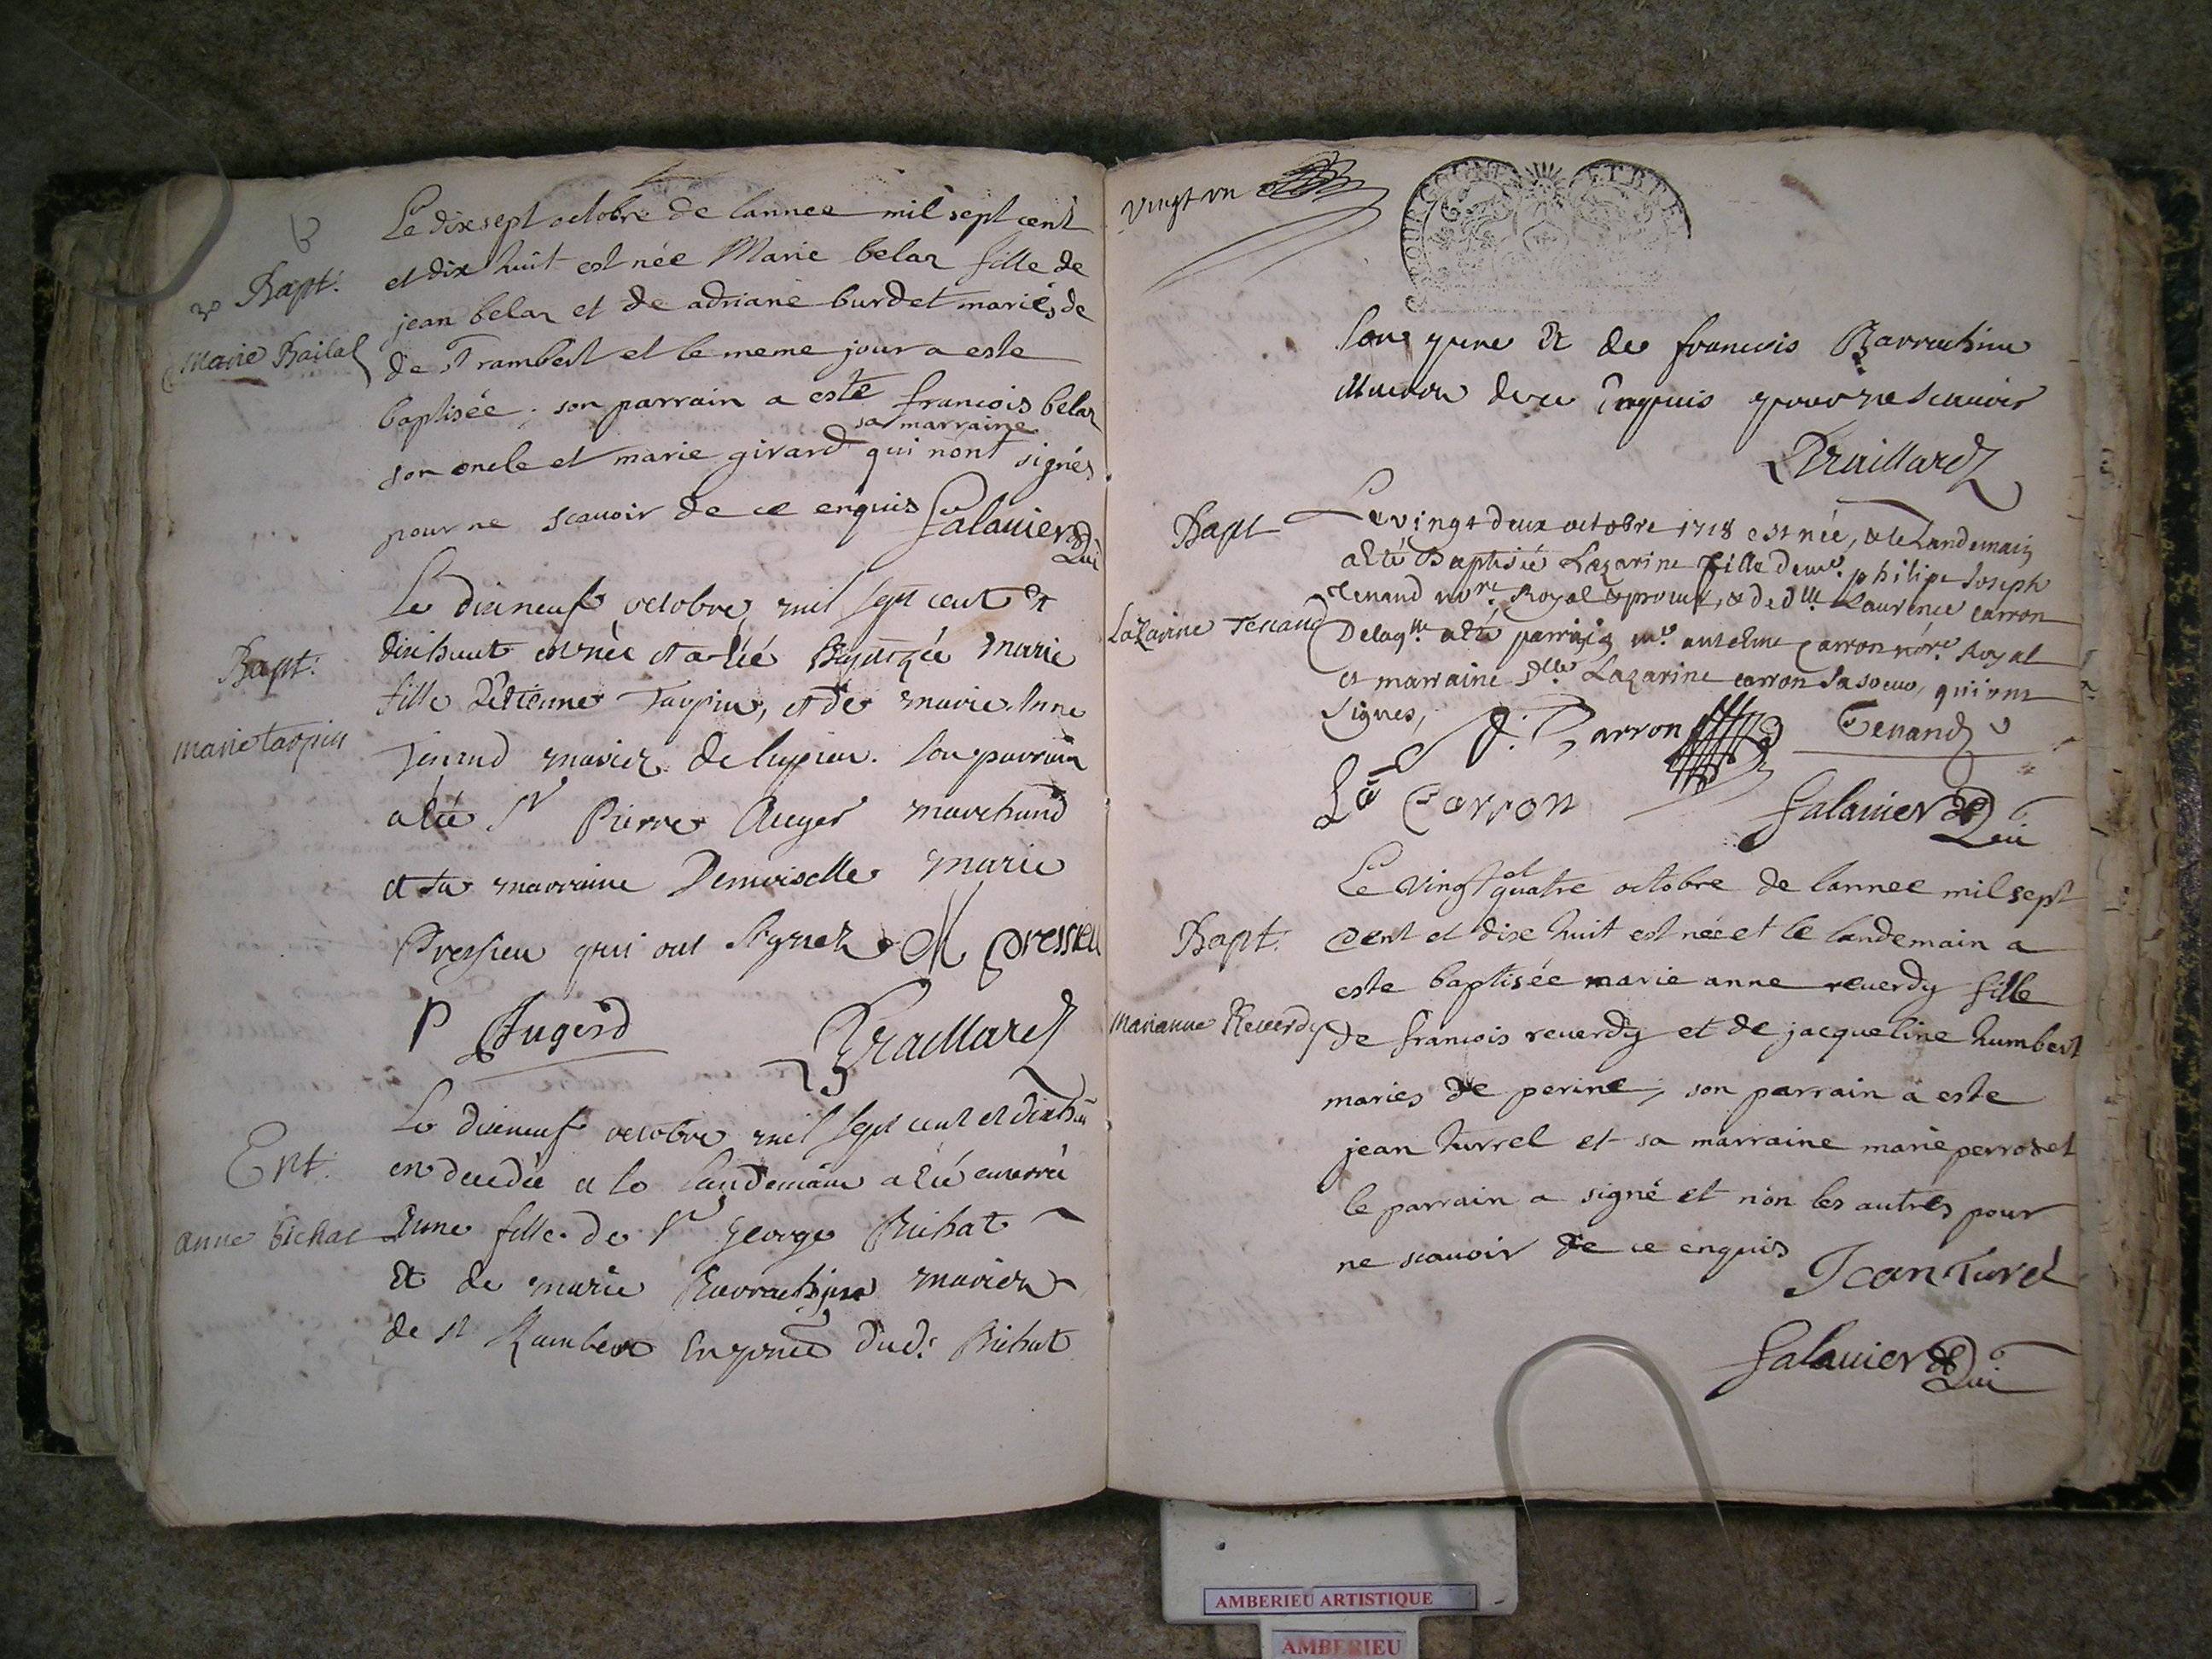 Bapt.
Marie Bailat
Le dixsept octobre de lannee mil sept cent
et dix huit est née Marie belaz fille de
jean belaz et de adriane burdet mariés de
de St rambert et le meme jour a este
baptisée; son parrain a esté francois belaz
sa marraine
son oncle et marie girard qui nont signés
pour ne scauoir de ce enquis Galauier
Bapt.
marie tarpin
Le dixneuf octobre mil sept cent et
dixhuit est née et a été Baptizée marie
fille d'étienne Tarpin, et de marie Anne
Tenand mariez de lupieu. Son parrain
a été Sr Pierre Auger marchand
et sa marraine Demoiselle marie
Pressieu qui ont signez M pressieu
P Augerd Braillard
Ent.
anne bichat
Le dixneuf octobre mil sept cent et dixhuit
en decedée et le landemain a été enterrée
Anne fille de Sr George Bichat
et de marie Barrachin mariez
de St Rambert En pnce dud. Bichat
vingt vn
BOURGOGNE ET BRE
Son pere et de francois Barrachin
de ce Enquis pour ne scauoir
Braillard
Bapt
Lazarine Tenand
Le vingt deux octobre 1718 est née, & le Landemain
a été Baptisée Lazarine fille de me. philipe Joseph
Tenand nore. Royal & procur, & de dlle Laurence carron
Delaqlle a été parrain me. anselme carron nore. Royal
et marraine Dlle Lazarine carron sa soeur, qui ont
signes, A. Carron Tenand
La Carron Galauier
Bapt.
Marianne Reuerdy
et
Le vingt quatre octobre de lannee mil sept
cent et dix huit est née et le landemain a
este baptisée marie anne reuerdy fille
de francois reuerdy et de jacqueline humbert
maries de perine; son parrain a este
jean turrel et sa marraine marie perroset
le parrain a signé et non les autres pour
ne scauoir de ce enquis Jean Turel
Galauier
AMBERIEU ARTISTIQUE
AMBERIEU